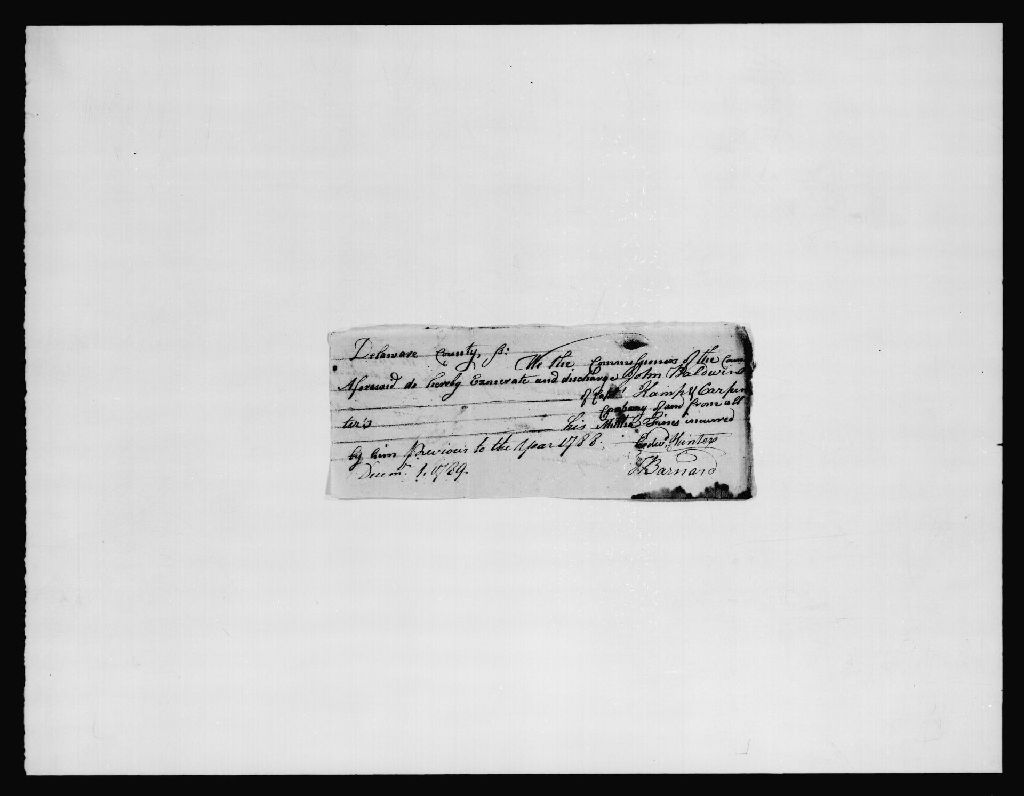 Delaware County, ss: We the Commissioners of the County
Aforesaid do hereby Exonerate and discharge John Baldwin
of Capt. Kamp & Carpen
ter's Company of and from all
his Militia Fines incurred
by him Previous to the Year 1788.
Decem. 1. 1789. Edwd. Hunter
J Barnard